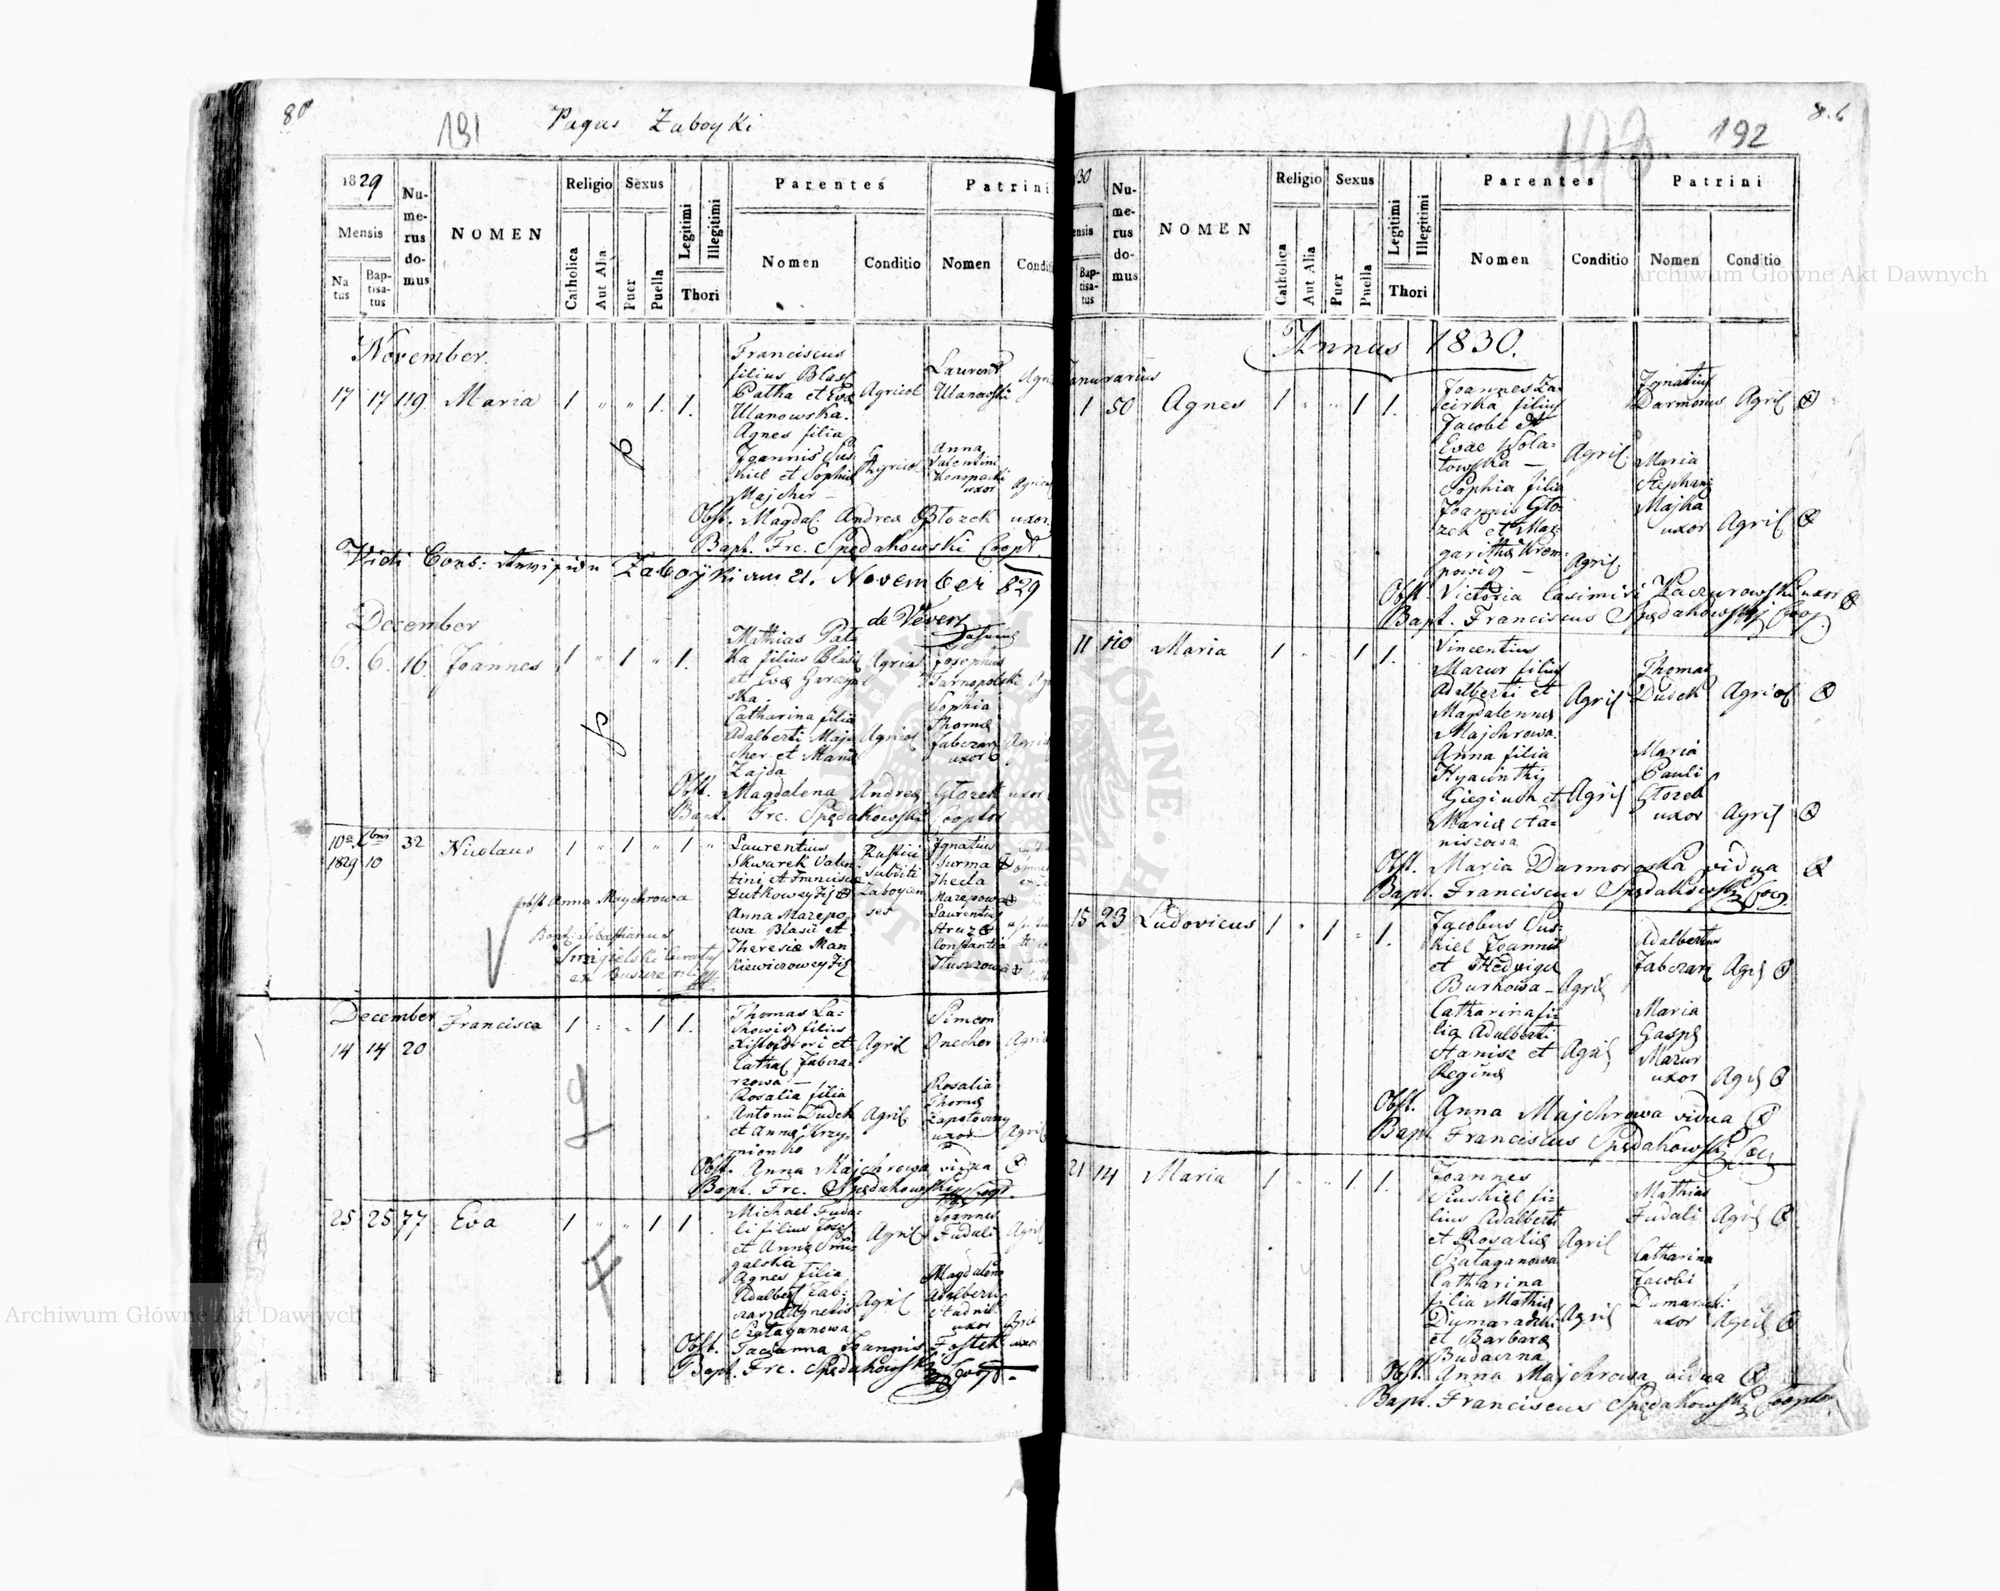 80
191
Pagus Zaboyki
1829
Mensis
Na
tus
Bap-
tisa-
tus
Nu-
me-
rus
do-
mus
NOMEN
Religio
Catholica
Aut Alia
Sexus
Puer
Puella
Legitimi
Illegitimi
Thori
Parentes
Nomen
Conditio
Patrini
Nomen
Conditi
November.
17 17 119 Maria 1 " " 1. 1.
Franciscus
filius Blasi
Patka et Eva
Ulanowska.
Agricol
Agnes filia
Joannis Sus-
kiel et Sophia
Majcher —
Agricol
Laurent
Ulanowski
Anna
Valentini
uxor
Obst. Magdal. Andrea Glozek uxor.
Bapt. Frc. Spędakowski Coopt.
Vidi Cons: Zaboyki am 21. November 829
December
6. 6. 16. Joannes 1 " 1 " 1.
Mathias Pat-
ka filius Blasii
et Evæ Garczyń
ska.
Agricol
Catharina filia
Adalberti Maj-
cher et Maria
Zajda
Agricol
Josephus
Tarnopolski
Sophia
Thomæ
Jabczar
uxor
Obst. Magdalena Andrea Glozek uxor
Bapt. Frc. Spędakowski Cooptor
10a Xbris 32 Nicolaus 1 " 1 " 1 "
1829 10
Laurentius
Skwarek Valen-
tini et Francisca
Dutkowey Fil
Anna Mazepo-
wa Blasii et
Theresiæ Man
kiewiczowey Fil
Rustici
subditi
Zaboycen
ses
Ignatius
Surma
Thecla
Mazepowa
Laurentius
Struz
Constantia
Tluszzowa
obst Anna Maychrowa
Bapt. Sebastianus
December Francisca 1 " " 1 1.
14 14 20
Thomas La-
chowicz filius
et
Cathar Jabcza-
rzowa —
Agril
Rosalia filia
Antonii Dudek
et Annæ Krzy-
mionko
Agril
Simeon
Onecher
Rosalia
Thomæ
Zapotoczny
uxor
Obst. Anna Majchrowa vidua
Bapt. Frc. Spędakowski Coopt.
25 25 77 Eva 1 " " 1 1.
Michael Fuda-
li filius Josef
et Anna Smi-
galska
Agril
Agnes filia
Adalbert Jab-
czar et Agnetis
Szataganowa
Agril
Joannes
Fudali
Magdalena
Adalberti
Stadnik
uxor
Obst. Joannis uxor
Bapt. Frc. Spędakowski Coopt.
8.6
192
30
ensis
Bap-
tisa-
tus
Nu-
me-
rus
do-
mus
NOMEN
Religio
Catholica
Aut Alia
Sexus
Puer
Puella
Legitimi
Illegitimi
Thori
Parentes
Nomen
Conditio
Patrini
Nomen
Conditio
Annus 1830.
Januarius
1 50 Agnes 1 " " 1 1.
Joannes La-
cirka filius
Jacobi et
Evae Wola-
towska —
Agril
Sophia filia
Joannis Glo-
zek et Mar-
garitha Krem-
powicz —
Agril
Ignatius
Darmoros Agril
Maria
Stephani
Majka
uxor Agril
Obst. Victoria Casimiri Kaczurowski uxor
Bapt. Franciscus Spędakowski Coop
11 110 Maria 1 " 1 1.
Vincentius
Mazur filius
Adalberti et
Magdalennæ
Majchrowa.
Agril
Anna filia
Hyacinthij
Giegiuch et
Mariæ Sta-
niszowa
Agril
Thomas
Dudek Agricol
Maria
Pauli
Glozek
uxor Agril
Obst. Maria Darmorowska vidua
Bapt. Franciscus Spędakowski Coop.
15 23 Ludovicus 1 " 1 " 1.
Jacobus Sus-
kiel Joannis
et Hedwiga
Burkowa —
Agril
Catharina fi-
lia Adalberti
Stanisz et
Reginæ
Agril
Adalbertus
Jabczarz Agril
Maria
Gaspr
Mazur
uxor Agril
Obst. Anna Majchrowa vidua
Bapt. Franciscus Spędakowski Coop
21 14 Maria 1 " " 1 1.
Joannes
Siuskiel fi-
lius Adalberti
et Rosaliæ
Szataganowa
Agril
Catharina
filia Mathiæ
Dumaradzki
et Barbara
Budacrna
Agril
Mathias
Fudali Agril
Catharina
Jacobi
Dumaradzki
uxor Agril
Obst. Anna Majchrowa vidua
Bapt. Franciscus Spędakowski Cooptor
Archiwum Główne Akt Dawnych
Archiwum Główne Akt Dawnych